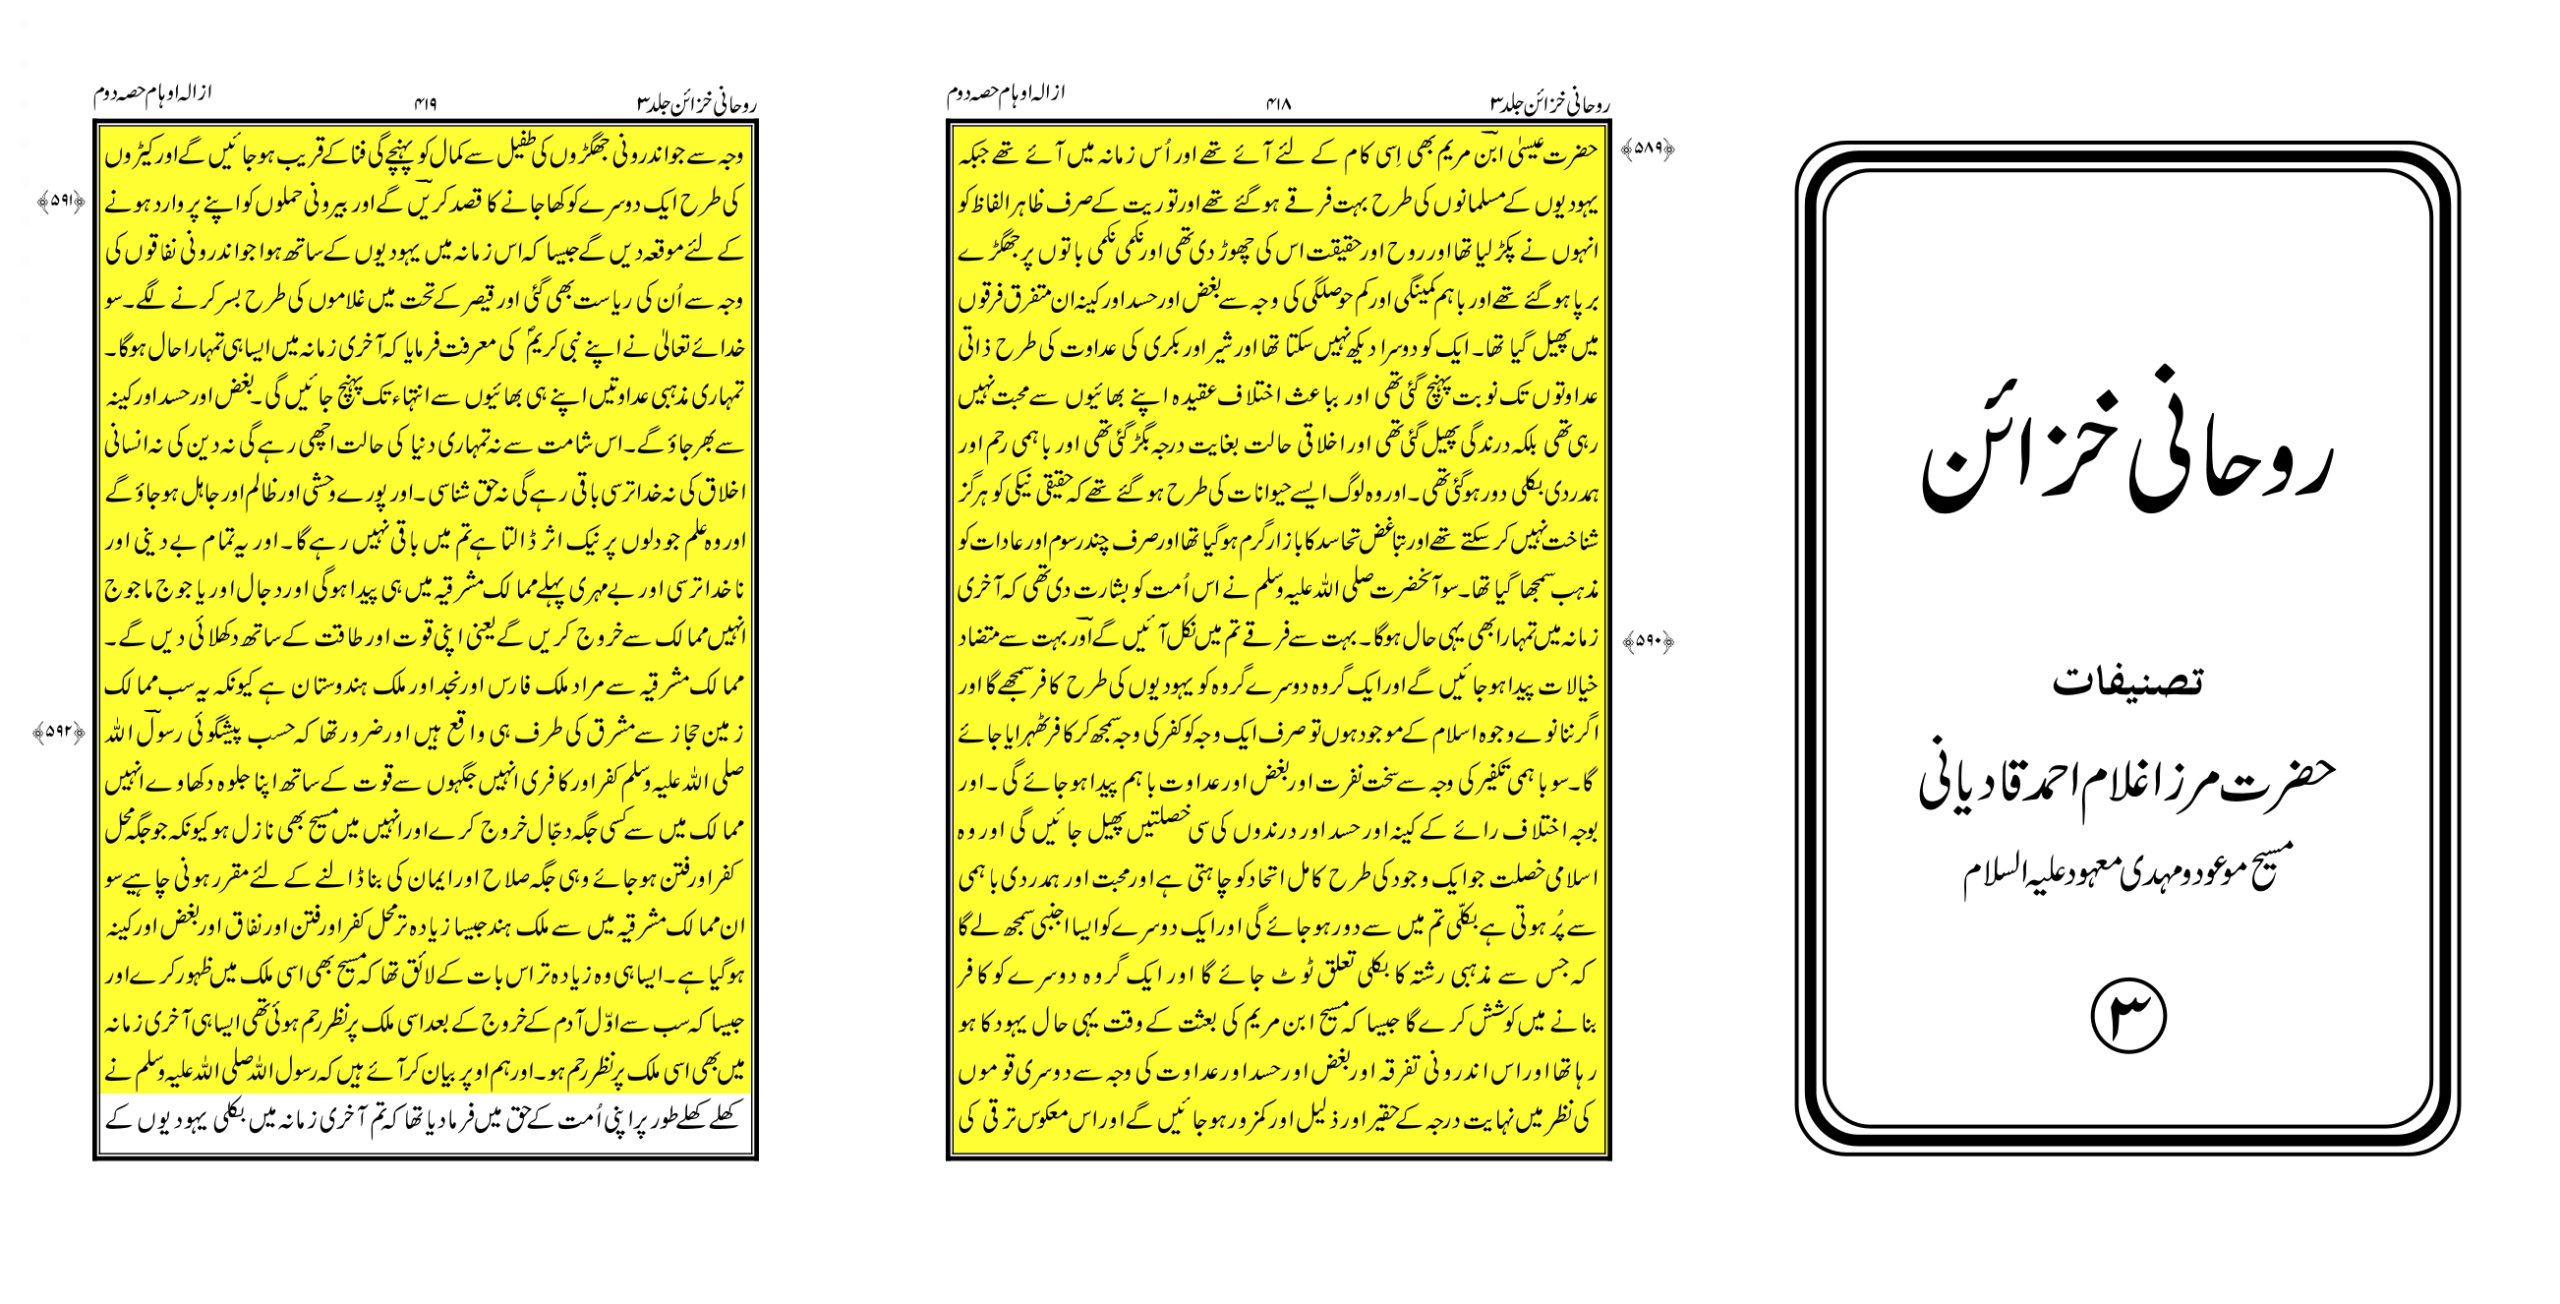 روحانی خزائن
تصنیفات
حضرت مرزا غلام احمد قادیانی
مسیح موعود و مہدی معہود علیہ السلام
۳
روحانی خزائن جلد ۳
۴۱۸
ازالہ اوہام حصہ دوم
﴿۵۸۹﴾
حضرت عیسیٰ ابن مریم بھی اِسی کام کے لئے آئے تھے اور اُس زمانہ میں آئے تھے جبکہ
یہودیوں کے مسلمانوں کی طرح بہت فرقے ہوگئے تھے اور توریت کے صرف ظاہر الفاظ کو
انہوں نے پکڑ لیا تھا اور روح اور حقیقت اس کی چھوڑ دی تھی اور نکمی نکمی باتوں پر جھگڑے
برپا ہوگئے تھے اور باہم کمینگی اور کم حوصلگی کی وجہ سے بغض اور حسد اور کینہ ان متفرق فرقوں
میں پھیل گیا تھا۔ ایک کو دوسرا دیکھ نہیں سکتا تھا اور شیر اور بکری کی عداوت کی طرح ذاتی
عداوتوں تک نوبت پہنچ گئی تھی اور بباعث اختلاف عقیدہ اپنے بھائیوں سے محبت نہیں
رہی تھی بلکہ درندگی پھیل گئی تھی اور اخلاقی حالت بغایت درجہ بگڑ گئی تھی اور باہمی رحم اور
ہمدردی بکلی دور ہوگئی تھی۔ اور وہ لوگ ایسے حیوانات کی طرح ہو گئے تھے کہ حقیقی نیکی کو ہرگز
شناخت نہیں کر سکتے تھے اور تباغض تحاسد کا بازار گرم ہوگیا تھا اور صرف چند رسوم اور عادات کو
مذہب سمجھا گیا تھا۔ سو آنحضرت صلی اللہ علیہ وسلم نے اس اُمت کو بشارت دی تھی کہ آخری
﴿۵۹۰﴾
زمانہ میں تمہارا بھی یہی حال ہوگا۔ بہت سے فرقے تم میں نکل آئیں گے اور بہت سے متضاد
خیالات پیدا ہوجائیں گے اور ایک گروہ دوسرے گروہ کو یہودیوں کی طرح کافر سمجھے گا اور
اگر ننانوے وجوہ اسلام کے موجود ہوں تو صرف ایک وجہ کو کفر کی وجہ سمجھ کر کافر ٹھہرایا جائے
گا۔ سو باہمی تکفیر کی وجہ سے سخت نفرت اور بغض اور عداوت باہم پیدا ہوجائے گی۔ اور
بوجہ اختلاف رائے کے کینہ اور حسد اور درندوں کی سی خصلتیں پھیل جائیں گی اور وہ
اسلامی خصلت جو ایک وجود کی طرح کامل اتحاد کو چاہتی ہے اور محبت اور ہمدردی باہمی
سے پُر ہوتی ہے بکلّی تم میں سے دور ہوجائے گی اور ایک دوسرے کو ایسا اجنبی سمجھ لے گا
کہ جس سے مذہبی رشتہ کا بکلی تعلق ٹوٹ جائے گا اور ایک گروہ دوسرے کو کافر
بنانے میں کوشش کرے گا جیسا کہ مسیح ابن مریم کی بعثت کے وقت یہی حال یہود کا ہو
رہا تھا اور اس اندرونی تفرقہ اور بغض اور حسد اور عداوت کی وجہ سے دوسری قوموں
کی نظر میں نہایت درجہ کے حقیر اور ذلیل اور کمزور ہوجائیں گے اور اس معکوس ترقی کی
روحانی خزائن جلد ۳
۴۱۹
ازالہ اوہام حصہ دوم
وجہ سے جو اندرونی جھگڑوں کی طفیل سے کمال کو پہنچے گی فنا کے قریب ہوجائیں گے اور کیڑوں
﴿۵۹۱﴾
کی طرح ایک دوسرے کو کھا جانے کا قصد کریں گے اور بیرونی حملوں کو اپنے پر وارد ہونے
کے لئے موقعہ دیں گے جیسا کہ اس زمانہ میں یہودیوں کے ساتھ ہوا جو اندرونی نفاقوں کی
وجہ سے اُن کی ریاست بھی گئی اور قیصر کے تحت میں غلاموں کی طرح بسر کرنے لگے۔ سو
خدائے تعالیٰ نے اپنے نبی کریمؐ کی معرفت فرمایا کہ آخری زمانہ میں ایسا ہی تمہارا حال ہوگا۔
تمہاری مذہبی عداوتیں اپنے ہی بھائیوں سے انتہاء تک پہنچ جائیں گی۔ بغض اور حسد اور کینہ
سے بھر جاؤ گے۔ اس شامت سے نہ تمہاری دنیا کی حالت اچھی رہے گی نہ دین کی نہ انسانی
اخلاق کی نہ خدا ترسی باقی رہے گی نہ حق شناسی۔ اور پورے وحشی اور ظالم اور جاہل ہوجاؤ گے
اور وہ علم جو دلوں پر نیک اثر ڈالتا ہے تم میں باقی نہیں رہے گا۔ اور یہ تمام بے دینی اور
ناخدا ترسی اور بے مہری پہلے ممالک مشرقیہ میں ہی پیدا ہوگی اور دجال اور یاجوج ماجوج
انہیں ممالک سے خروج کریں گے یعنی اپنی قوت اور طاقت کے ساتھ دکھلائی دیں گے۔
ممالک مشرقیہ سے مراد ملک فارس اور نجد اور ملک ہندوستان ہے کیونکہ یہ سب ممالک
﴿۵۹۲﴾
زمین حجاز سے مشرق کی طرف ہی واقع ہیں اور ضرور تھا کہ حسب پیشگوئی رسول اللہ
صلی اللہ علیہ وسلم کفر اور کافری انہیں جگہوں سے قوت کے ساتھ اپنا جلوہ دکھاوے انہیں
ممالک میں سے کسی جگہ دجّال خروج کرے اور انہیں میں مسیح بھی نازل ہو کیونکہ جو جگہ محل
کفر اور فتن ہوجائے وہی جگہ صلاح اور ایمان کی بنا ڈالنے کے لئے مقرر ہونی چاہیے سو
ان ممالک مشرقیہ میں سے ملک ہند جیسا زیادہ تر محل کفر اور فتن اور نفاق اور بغض اور کینہ
ہوگیا ہے۔ ایسا ہی وہ زیادہ تر اس بات کے لائق تھا کہ مسیح بھی اسی ملک میں ظہور کرے اور
جیسا کہ سب سے اوّل آدم کے خروج کے بعد اسی ملک پر نظر رحم ہوئی تھی ایسا ہی آخری زمانہ
میں بھی اسی ملک پر نظر رحم ہو۔ اور ہم اوپر بیان کر آئے ہیں کہ رسول اللہ صلی اللہ علیہ وسلم نے
کھلے کھلے طور پر اپنی اُمت کے حق میں فرما دیا تھا کہ تم آخری زمانہ میں بکلی یہودیوں کے